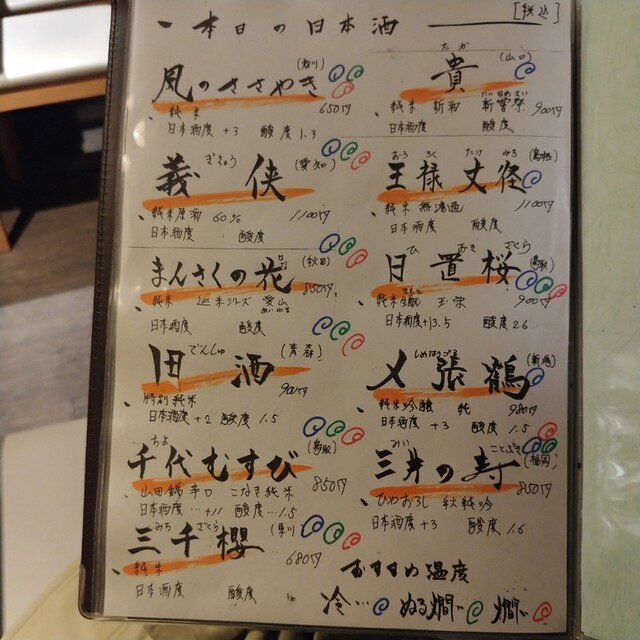 一本日の日本酒
[税込]
風のささやき (香川)
純米 650円
日本酒度 +3 酸度 1.3
たか
貴 (山口)
純米 新酒 900円
日本酒度 酸度
ぎきょう
義侠 (愛知)
純米原酒 60% 1100円
日本酒度 酸度
おうろく たけ みち
王様 丈径 (島根)
純米 無濾過 1100円
日本酒度 酸度
まんさくの花 (秋田)
純米 巡米シリーズ 愛山 850円
あいやま
日本酒度 酸度
ひ おき ざくら
日置桜 (鳥取)
純米 玉栄 900円
日本酒度 +13.5 酸度 2.6
でんしゅ
田酒 (青森)
特別純米 900円
日本酒度 +2 酸度 1.5
しめはりつる
〆張鶴 (新潟)
純米吟醸 純 980円
日本酒度 +3 酸度 1.5
ちよ
千代むすび (鳥取)
山田錦 辛口 こなき純米 850円
日本酒度…+11 酸度…1.5
みい ことぶき
三井の寿 (福岡)
ひやおろし 秋純吟 850円
日本酒度 +3 酸度 1.6
みち ざくら
三千櫻
純米 680円
日本酒度 酸度
おすすめ温度
冷… ぬる燗… 燗…